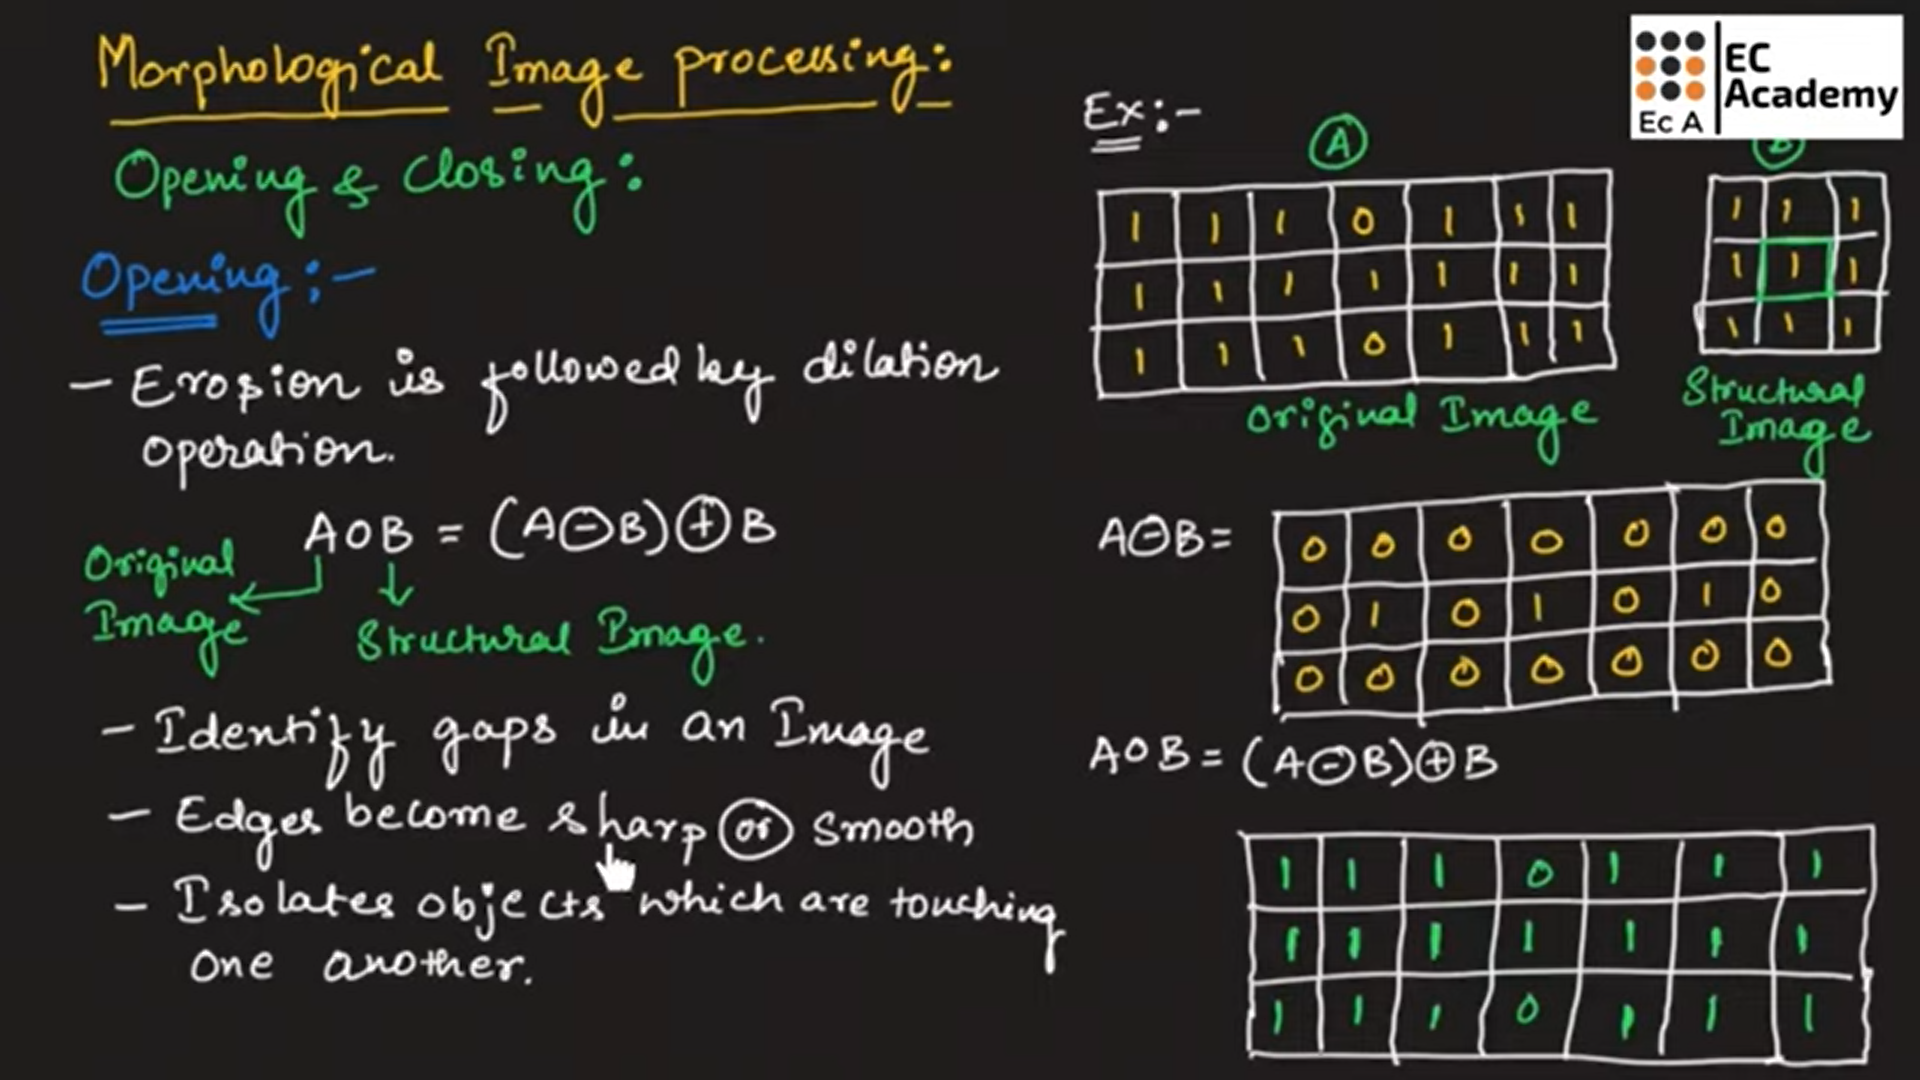 Morphological Image processing:
Opening & Closing:
Opening:-
- Erosion is followed by dilation
operation.
A∘B = (A⊖B)⊕B
Original
Image
Structural Image.
- Identify gaps in an Image
- Edges become sharp or smooth
- Isolates objects which are touching
one another.
EC
Academy
Ec A
Ex:-
A
B
1 1 1 0 1 1 1
1 1 1 1 1 1 1
1 1 1 0 1 1 1
Original Image
1 1 1
1 1 1
1 1 1
Structural
Image
A⊖B =
0 0 0 0 0 0 0
0 1 0 1 0 1 0
0 0 0 0 0 0 0
A∘B = (A⊖B)⊕B
1 1 1 0 1 1 1
1 1 1 1 1 1 1
1 1 1 0 1 1 1